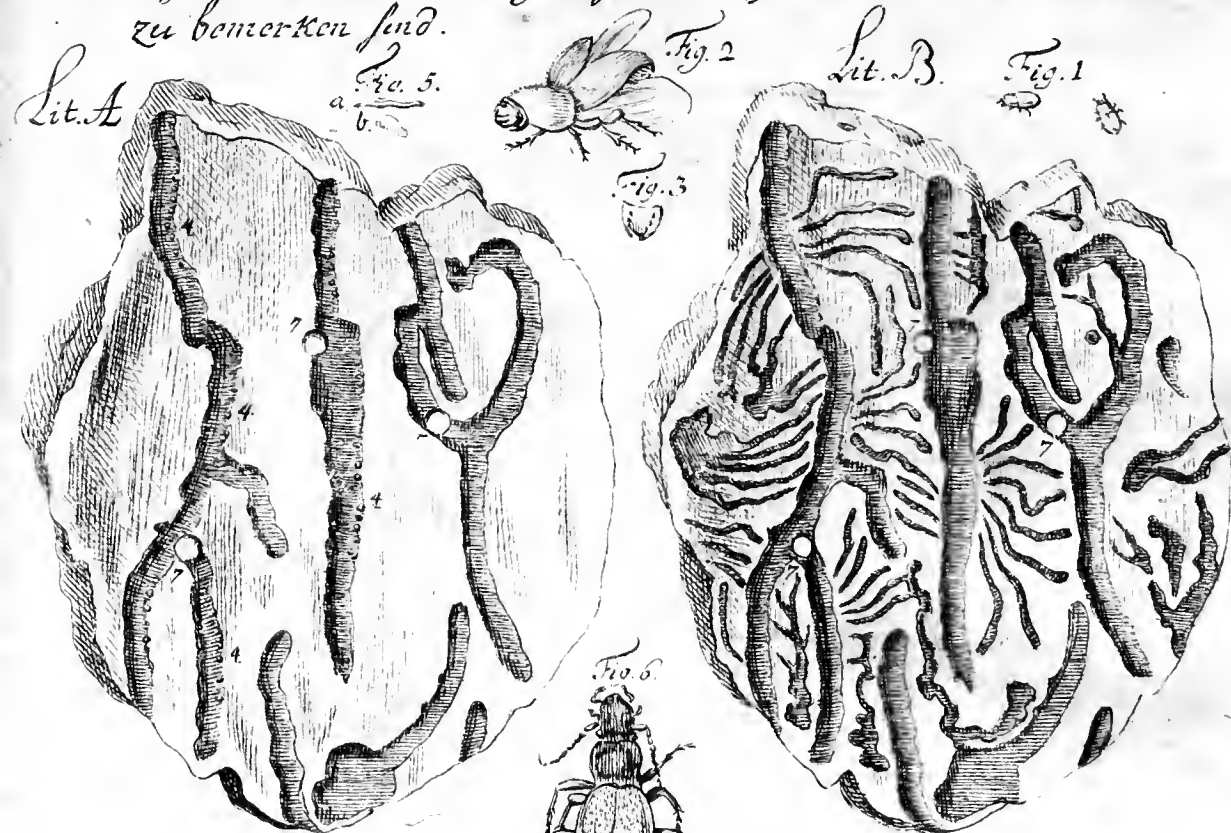 zu bemerken sind.
Lit. A
Fig. 5.
a.
b.
Fig. 2
Lit. B.
Fig. 1
Fig. 3
4
7
4.
4
7
4.
7
7
Fig. 6.